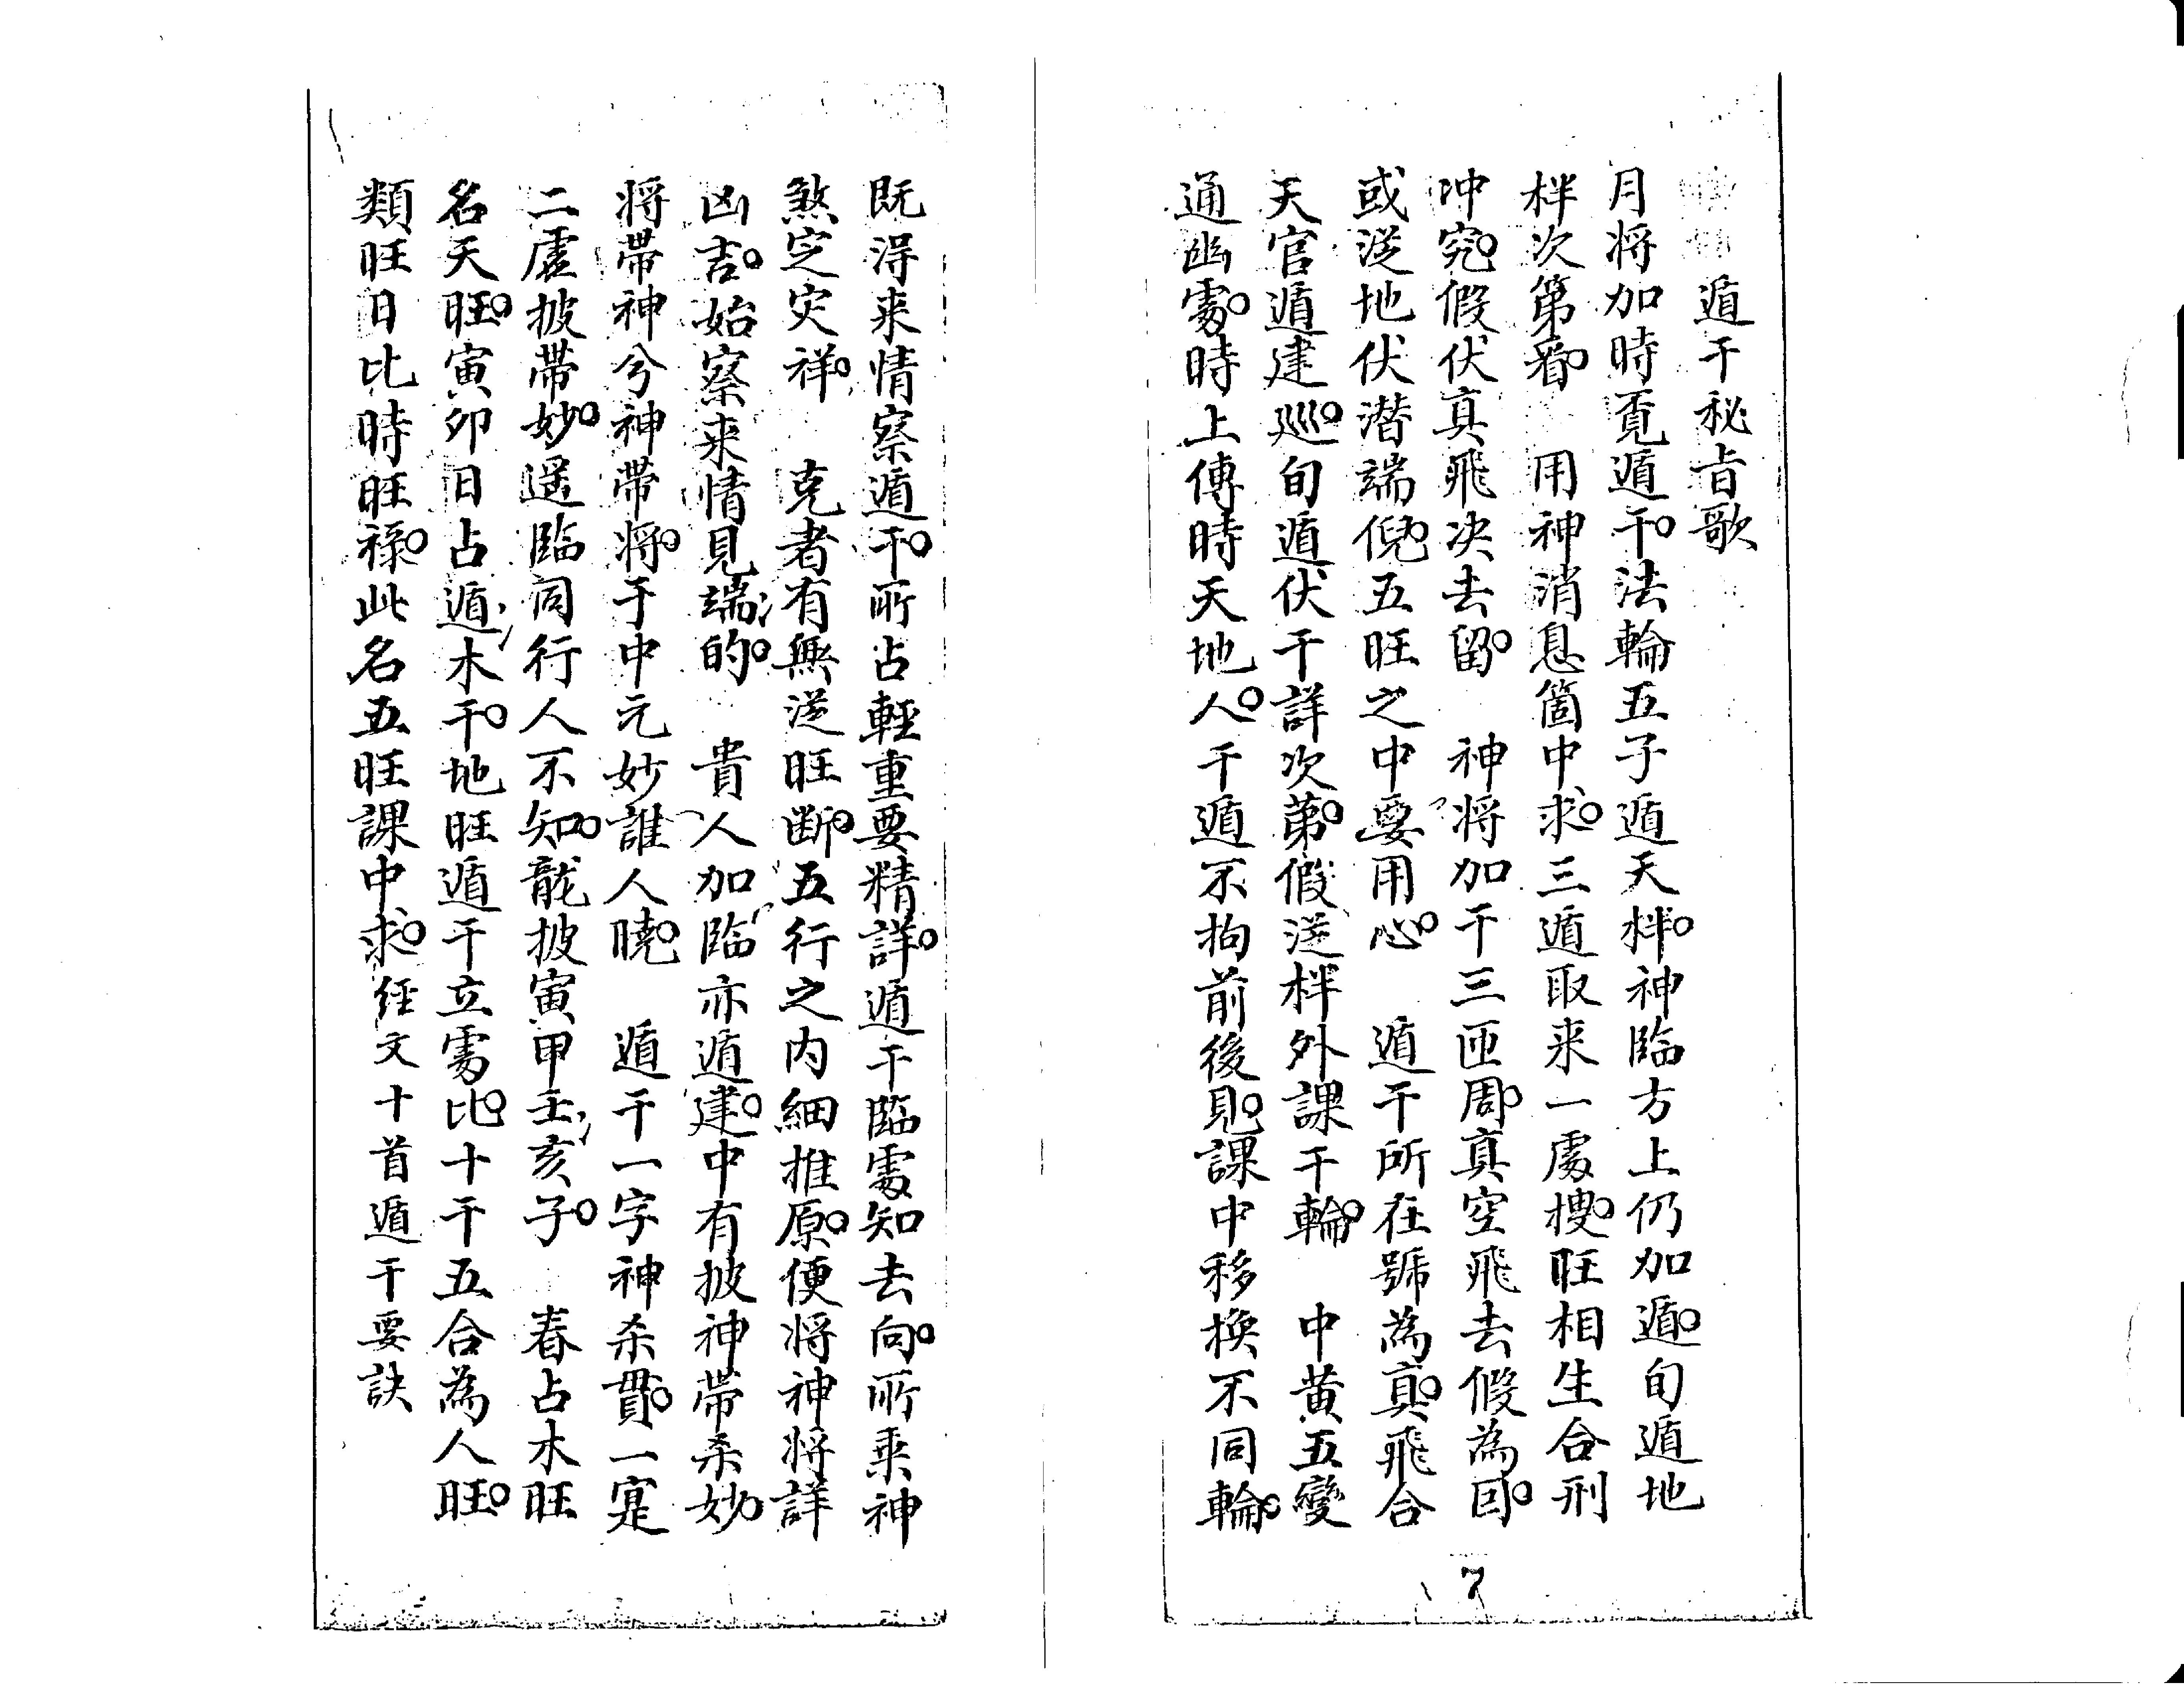 遁干秘旨歌
月将加時覔遁干。法輪五子遁天柈。神臨方上仍加遁。旬遁地
柈次第看。　用神消息箇中求。三遁取来一處搜。旺相生合刑
冲究。假伏真飛决去留。　神将加干三匝周。真空飛去假為囙。
或逆地伏潜端倪。五旺之中要用心。　遁干所在號為真。飛合
天官遁建廵。旬遁伏干詳次第。假逆柈外課干輪。　中黄五變
通幽䖏。時上傳時天地人。干遁不拘前後見。課中移換不同輪。
既得来情察遁干。所占輕重要精詳。遁干臨䖏知去向。所乗神
煞㝎灾祥。　克者有無逆旺断。五行之内細推原。便将神将詳
凶吉。始察来情見端的。　貴人加臨亦遁建。中有披神帶杀妙。
将帶神兮神帶将。于中元妙誰人曉。　遁干一字神杀貫。一寔
二虚披帶妙。遥臨同行人不知。龍披寅甲壬亥子。　春占木旺
名天旺。寅卯日占遁木干。地旺遁干立䖏比。十干五合為人旺。
類旺日比時旺祿。此名五旺課中求。経文十首遁干要訣
7